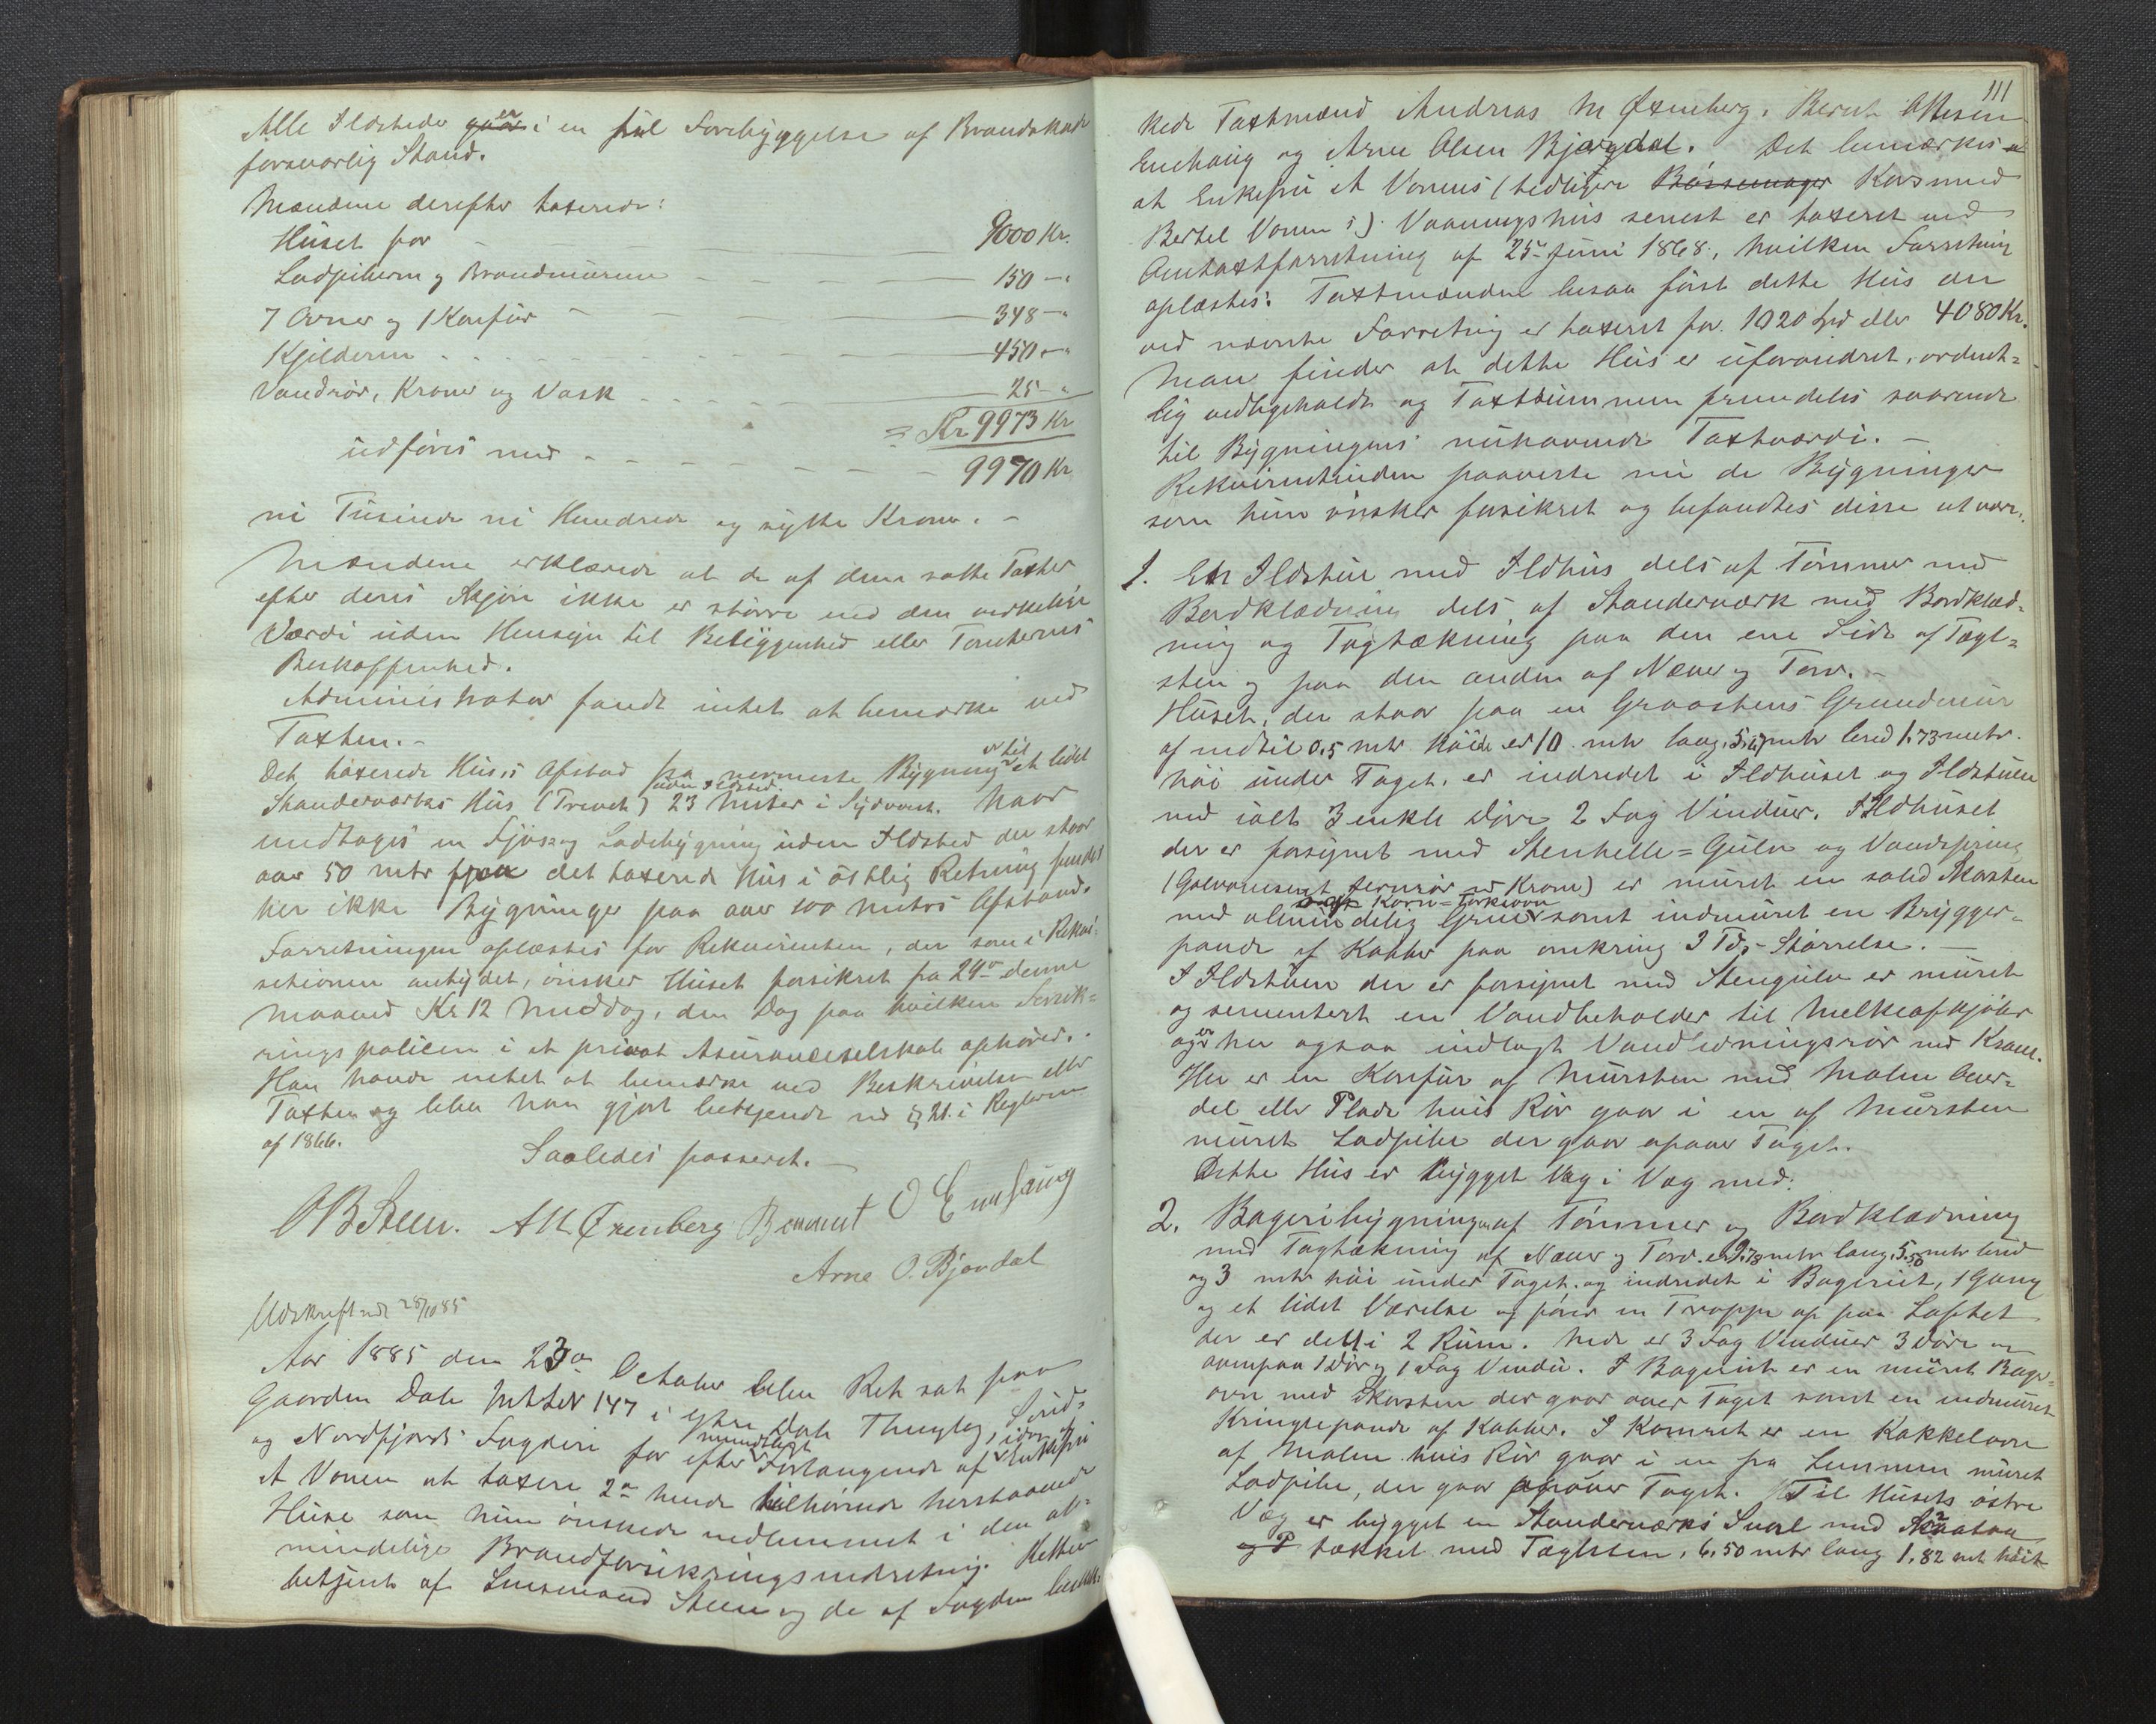 Alle Ildsteder er i en til Forebyggelse af Brandskade
forsvarlig Stand.
Mændene derefter taxerede:
Huset for 9000 Kr.
Ladpiberne og Brandmurene 150 -"
7 Ovner og 1 Komfur 348 -"
Kjelderen 450 -"
Vandrör, Kraner og Vask 25 -"
= Kr 9973 Kr
udföres med 9970 Kr
ni Tusinde ni Hundrede og sytti Kroner. -
Mændene erklærede at de af dem satte Taxter
efter deres Skjön ikke er större end den virkelige
Værdi uden Hensyn til Beliggenhed eller Tomternes
Beskaffenhed.
Administrator fandt intet at bemærke ved
Taxten. -
Det taxerede Hus's Afstand fra nærmeste Bygning er til et lidet
Standerværks Hus (Trevet) uden Ildsted 23 Meter i Sydvest. Naar
undtages en Fjös og Ladebygning uden Ildsted der staar
over 50 mtr fra det taxerede Hus i östlig Retning findes
her ikke Bygninger paa over 100 Meters Afstand.
Forretningen oplæstes for Rekvirenten, der som i Rekvi-
sitionen antydet, önsker Huset forsikret fra 29de denne
Maaned Kl 12 Middag, den Dag paa hvilken Forsik-
ringspolicen i et privat Assuranceselskab ophörer.
Han havde intet at bemærke ved Beskrivelsen eller
Taxten og blev han gjort bekjendt med § 21 i Reglerne
af 1866.
Saaledes passeret. -
O B Steen. A M Öxenberg Berent O Enehaug
Arne O. Bjordal
Udskrift udst 28/10 85
Aar 1885 den 23de October blev Ret sat paa
Gaarden Dale Mtr No 147 i Ytre Dale Thinglag, Sönd-
og Nordfjords Fogderi for efter mundtligt Forlangende af Enkefru
A Vonen at taxere 2de hende tilhörende herstaaende
Huse som hun önskede indlemmet i den al-
mindelige Brandforsikringsindretning. Retten
betjent af Lensmand Steen og de af Fogden beskik-
111
kede Taxtmænd Andreas M Öxenberg, Bernt Olsen
Enehaug og Arne Olsen Bjordal. Det bemærkes
at Enkefru A Vonens (tidligere Bössemager Korsmed
Bertel Vonens) Vaaningshus senest er taxeret ved
Omtaxtforretning af 25de Juni 1868, hvilken Forretning
oplæstes. Taxtmændene besaa först dette Hus der
ved nævnte Forretning er taxeret for 1020 Spd eller 4080 Kr.
Man finder at dette Hus er uforandret, ordent-
lig vedligeholdt og Taxtsummen fremdeles svarende
til Bygningens nuhavende Taxtværdi. -
Rekvirentinden paaviste nu de Bygninger
som hun önsker forsikret og befandtes disse at være:
1. En Ildstue med Ildhus dels af Tömmer med
Bordklædning dels af Standerværk med Bordklæd-
ning og Tagtækning paa den ene Side af Tægl-
sten og paa den anden af Næver og Torv. -
Huset, der staar paa en Graastens Grundmur
af indtil 0.5 mtr Höide er 10 mtr lang, 5,67 mtr bred 1.73 metr.
höi under Taget, er indredet i Ildhuset og Ildstuen
med ialt 3 enkle Döre 2 Fag Vinduer. Ildhuset
der er forsynet med Stenhelle-Gulv og Vandspring
(Galvaniseret Jernrör m Krane) er muret en solid Skorsten
med almindelig Grue Korn-Törkeovn samt indmuret en Brygger-
pande af Kobber paa omkring 3 Td.-Störrelse. -
I Ildstuen der er forsynet med Stengulv er muret
og sementert en Vandbeholder til Melkeafkjöler
og er her ogsaa indlagt Vandledningsrör med Krane.
Her er en Komfur af Mursten med Malm Over-
del eller Plade hvis Rör gaar i en af Mursten
muret Ladpibe der gaar opover Taget.
Dette Hus er bygget Væg i Væg med:
2. Bageribygningen af Tömmer og Bordklædning
med Tagtækning af Næver og Torv. er 9.78 metr lang, 5.50 mtr bred
og 3 mtr höi under Taget, og indredet i Bageriet, 1 Gang
og et lidet Værelse og förer en Trappe op paa Loftet
der er delt i 2 Rum. Nede er 3 Fag Vinduer 3 Döre og
ovenpaa 1 Dör og 1 Fag Vindu. I Bageriet er en muret Bager-
ovn med Skorsten der gaar over Taget samt en indmuret
Kringlepande af Kobber. I Kamret er en Kakkelovn
af Malm hvis Rör gaar i en fra Lemmen muret
Ladpibe, der gaar opover Taget. Til Husets östre
Væg er bygget en Standerværks Sval med Skraatag
tækket med Tæglsten, 6,50 mtr lang 1,82 mt höit